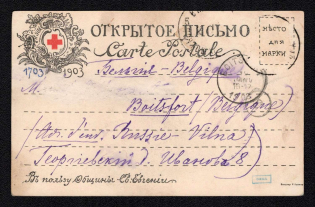 ОТКРЫТОЕ ПИСЬМО
Carte Postale
МѢСТО
ДЛЯ
МАРКИ
1703 1903
Бельгія - Belgique
M.
Boitsfort (Belgique)
Russie - Vilna
Георгіевскій Иванова 8)
Въ пользу Общины Св. Евгеніи